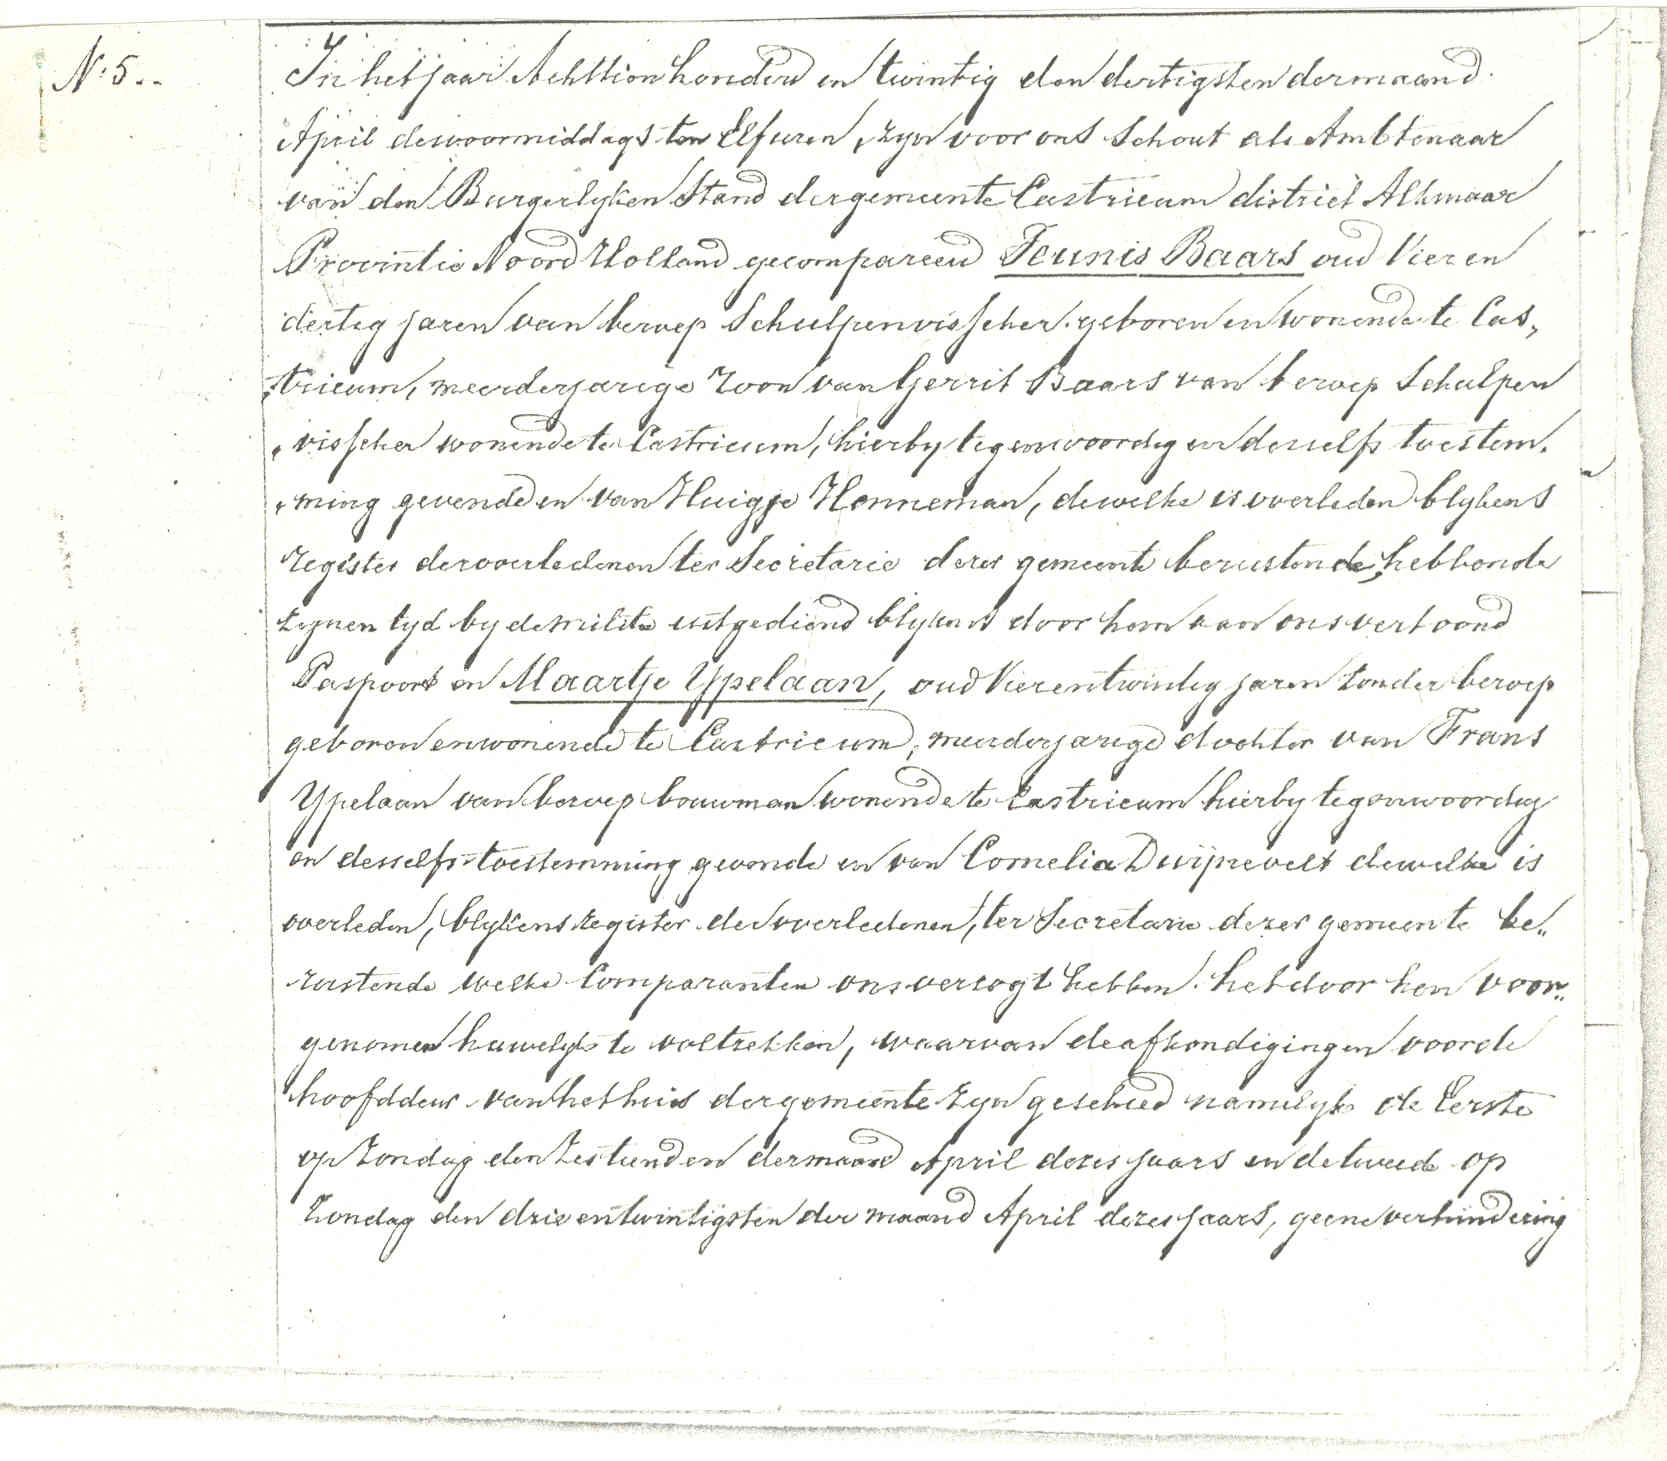 N: 5..
In het jaar Achttien honderd en twintig den dertigsten der maand
April des voormiddags ten Elf uren, zyn voor ons Schout als Ambtenaar
van den Burgerlyken Stand der gemeente Castricum district Alkmaar
Provintie Noord Holland gecompareerd Teunis Baars oud Vier en
dertig jaren van beroep Schulpenvisscher geboren en wonende te Cas„
„tricum, meerderjarige Zoon van Gerrit Baars van beroep Schulpen
„visscher wonende te Castricum, hierby tegenwoordig en deszelfs toestem„
„ming gevende en van Huigje Henneman, dewelke is overleden blykens
register der overledenen ter Secretarie dezer gemeente berustende, hebbende
zynen tyd by de militie uitgediend blykens door hem aan ons vertoond
Paspoort en Maartje Ypelaan, oud Vier en twintig jaren zonder beroep
geboren en wonende te Castricum, meerderjarige dochter van Frans
Ypelaan van beroep bouwman wonende te Castricum hierby tegenwoordig
en desselfs toestemming gevende en van Cornelia Duijnevelt dewelke is
overleden, blykens register der overledenen, ter Secretarie dezer gemeente be„
rustende welke Comparanten ons verzogt hebben het door hen voor„
genomen huwelyk te voltrekken, waarvan de afkondigingen voor de
hoofddeur van het huis der gemeente zyn geschied namelyk de Eerste
op Zondag den Zestienden der maand April dezes jaars en de tweede op
Zondag den drie en twintigsten der maand April dezes jaars, geene verhindering